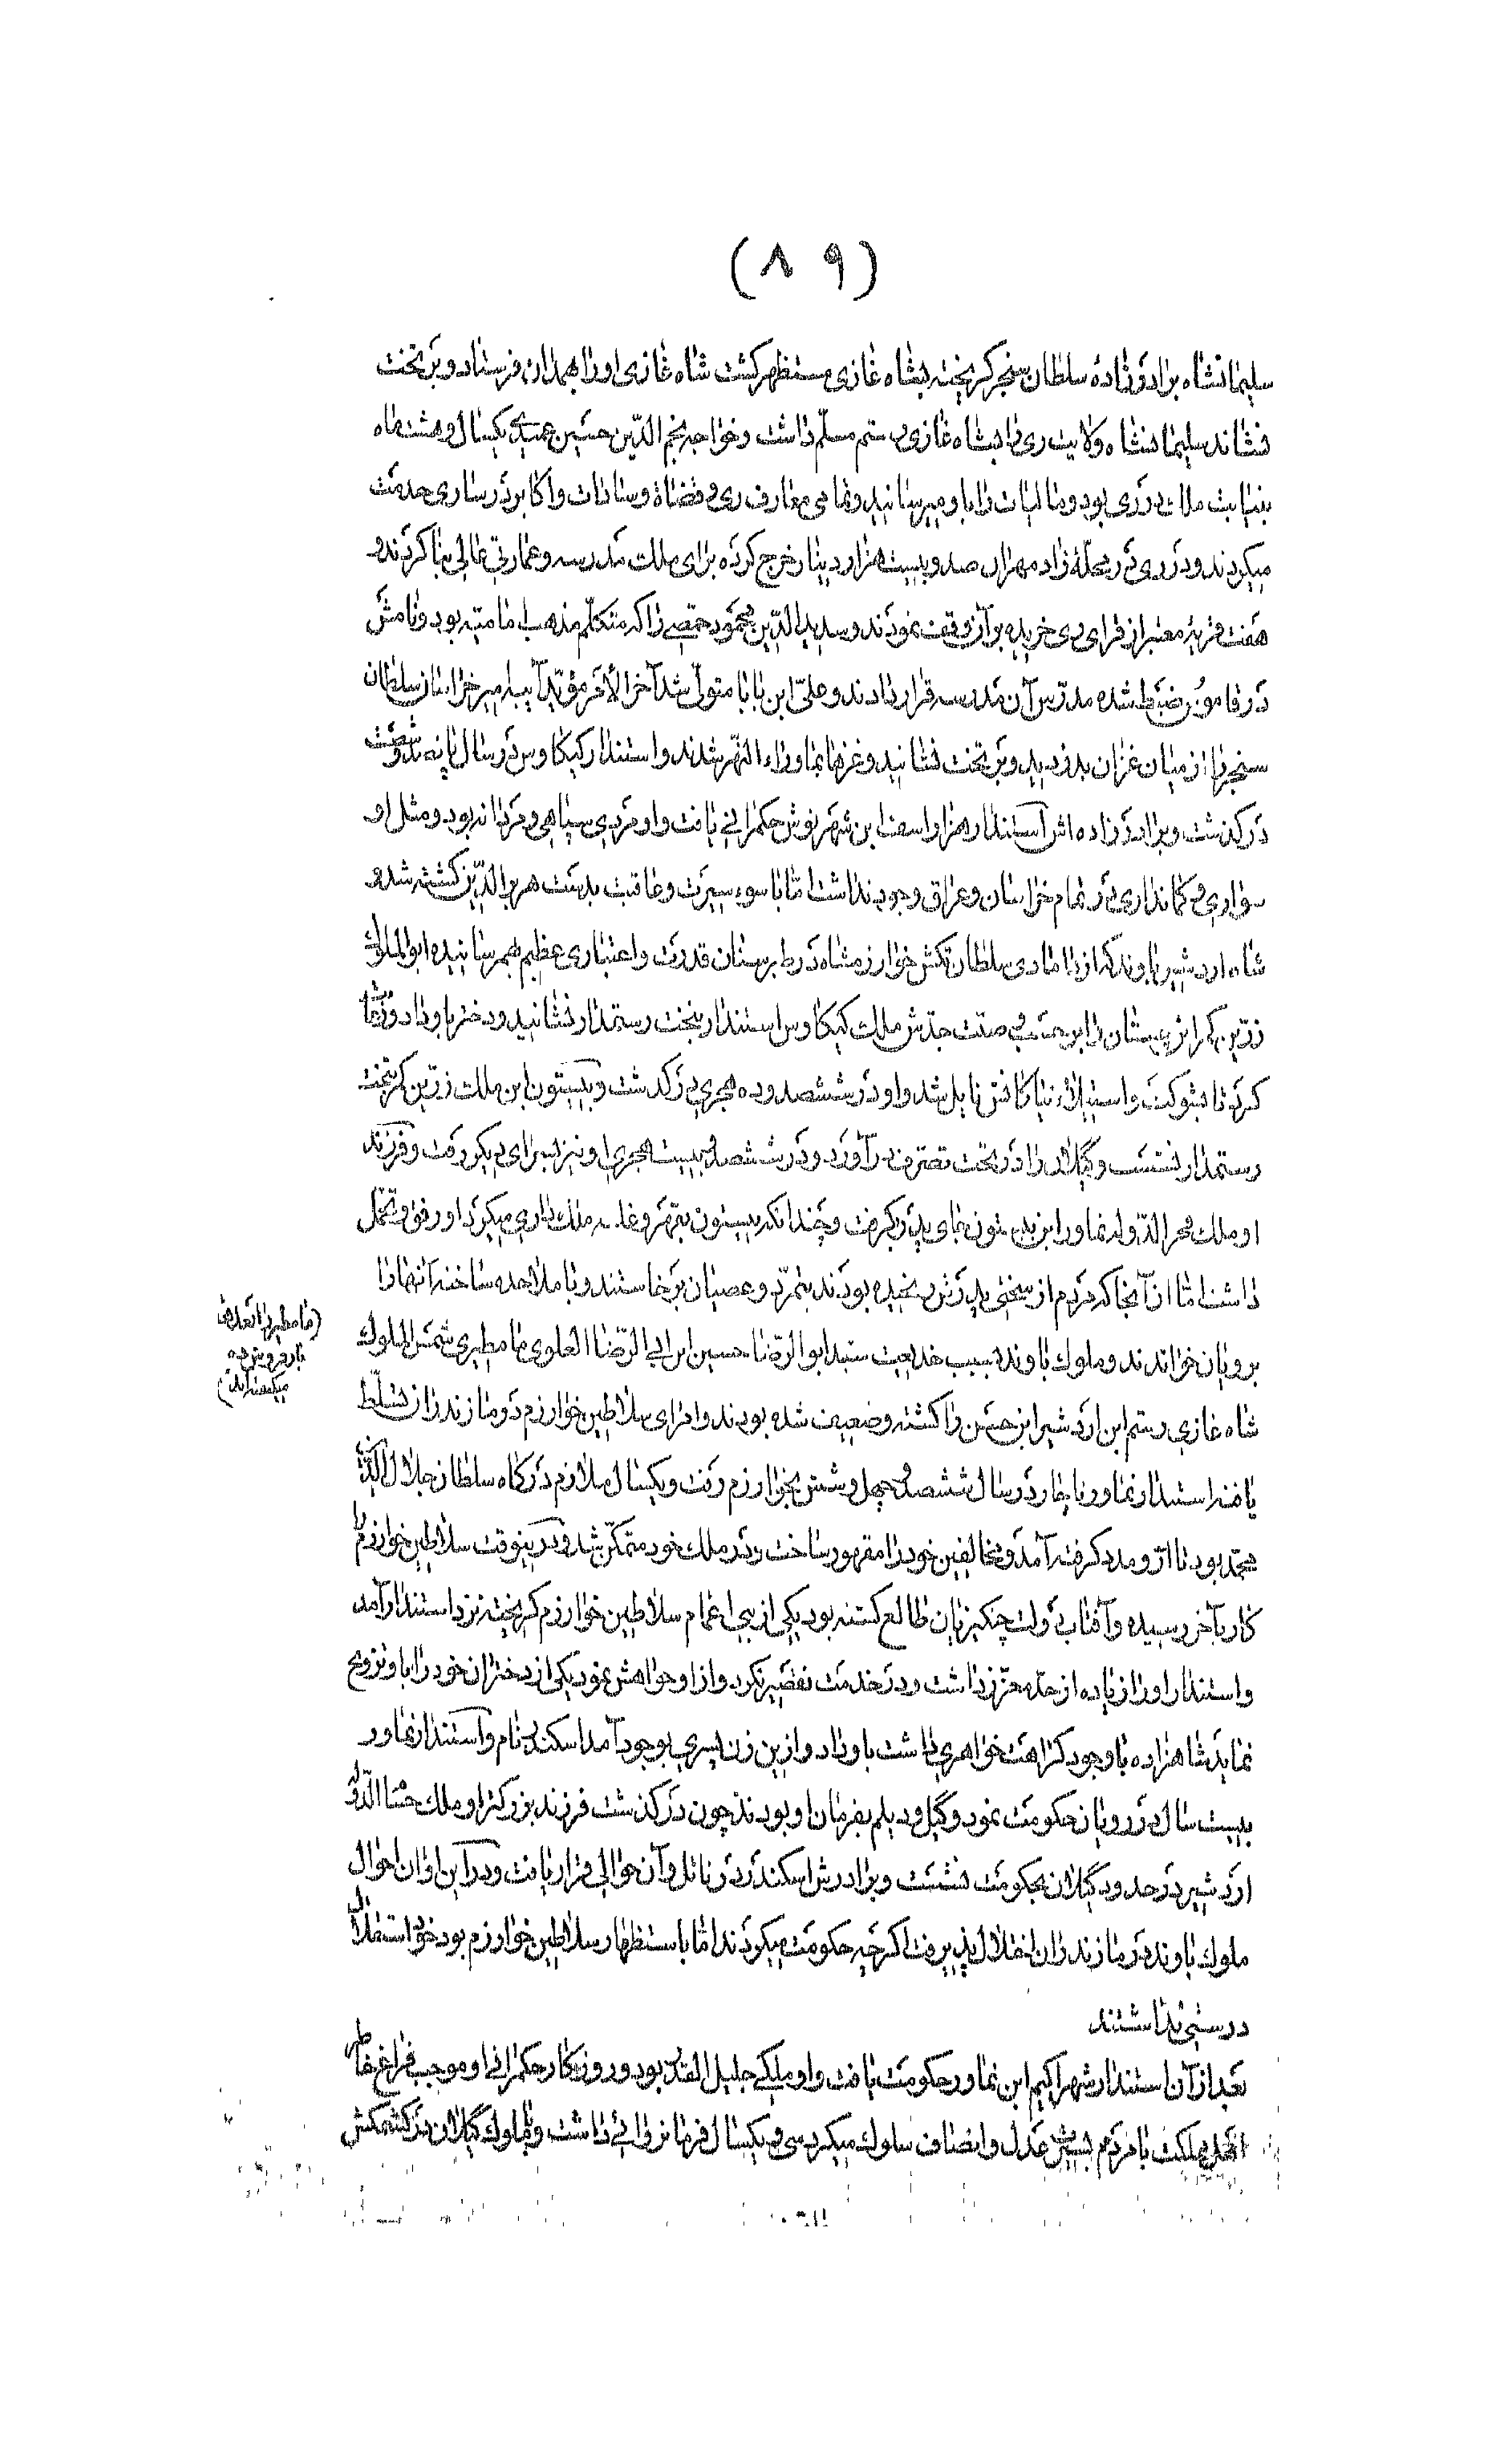 (٨٩)
سلیمانشاه برادرزادهٔ سلطان سنجر کریخته بشاه غازی مستظهر کشت شاه غازی اورا بهمدان فرستاد و بر تخت
نشاند سلیمانشاه ولایت ری را بشاه غازی رستم مسلّم داشت وخواجه نجم الدّین حسین عمیدی یکسال وهشت ماه
بنیابت ملك در ری بود ومالیات را باو میرسانید وتمامی معارف ری وقضاة وسادات واکابر در ساری خدمت
میکردند ودر ری در محلّهٔ زاد مهران صد وبیست هزار دینار خرج کرده برای ملك مدرسه وعمارتی عالی بنا کردند و
هفت قریهٔ معتبر از قرای ری خریده بر آن وقف نمودند وسدید الدّین محمود حمّصی را که متکلّم مذهب امامیّه بود ونامش
در قاموس ضبط شده مدرّس آن مدرسه قرار دادند وعلیّ ابن بابا متولّی شد آخر الأمر مؤیّد آیبه امیر خراسان سلطان
سنجر را از میان غزان بدزدید وبر تخت نشانید وغزها بماوراء النّهر شدند واستندار کیکاوس در سال پانصد وشصت
در کذشت وبرادرزاده اش استندار هزاراسف ابن شهرنوش حکمرانی یافت واو مردی سپاهی ومردانه بود ومثل او
سواری وکمانداری در تمام خراسان وعراق وجود نداشت امّا با سوء سیرت وعاقبت بدست هزبر الدّین کشته شد و
شاه اردشیر باوند که از دامادی سلطان تکش خوارزمشاه در طبرستان قدرت واعتباری عظیم بهم رسانیده ابو الملوك
زرّین کمر ابن جستان را بر حسب وصیّت جدّش ملك کیکاوس استندار بتخت رستمدار نشانید ودختر باو داد ورعایت
کرد تا بشوکت واستیلاء نیاکانش نایل شد واو در ششصد وده هجری در کذشت وبیستون ابن ملك زرّین کمر بتخت
رستمدار نشست وگیلان را در تحت تصرّف در آورد ودر ششصد وبیست هجری او نیز بسرای دیکر رفت وفرزند
او ملك فخر الدّوله نماور ابن بیستون بجای پدر بگرفت وچندانکه بیستون بقهر وغلبه ملك داری میکرد او رفق وتحمّل
داشت امّا از آنجا که مردم از سختی پدرش رنجیده بودند بتمرّد وعصیان برخاستند وبا ملاحده ساخته آنهارا
برویان خواندند وملوك باوند بسبب خدیعت سیّد ابو الرّضا حسین ابن ابی الرّضا العلوی مامطیری شمس الملوك
شاه غازی رستم ابن اردشیر ابن حسن را کشته وضعیف شده بودند وامرای سلاطین خوارزم در مازندران تسلّط
یافته استندار نماور ناچار در سال ششصد وچهل وشش بخوارزم رفت ویکسال ملازم درکاه سلطان جلال الدّین
محمّد بود تا ازو مدد کرفته آمد ومخالفین خود را مقهور ساخت ودر ملك خود متمکّن شد ودر اینوقت سلاطین خوارزم را
کار بآخر رسیده وآفتاب دولت چنکیزیان طالع کشته بود یکی از بنی اعمام سلاطین خوارزم کریخته نزد استندار آمد
واستندار اورا زیاده از حدّ معزّز داشت ودر خدمت تقصیر نکرد واز او خواهش نمود یکی از دختران خود را باو تزویج
نماید شاهزاده با وجود کراهت خواهری داشت باو داد وازین زن پسری بوجود آمد اسکندر نام واستندار نماور
بیست سال در رویان حکومت نمود وگیل ودیلم بفرمان او بودند چون در کذشت فرزند بزرکتر او ملك حسام الدّوله
اردشیر در حدود گیلان بحکومت نشست وبرادرش اسکندر در ناتل وآن حوالی قرار یافت ودر آن اوان احوال
ملوك باوند در مازندران اختلال پذیرفت اکرچه حکومت میکردند امّا باستظهار سلاطین خوارزم بود خود استقلال
درستی نداشتند
بعد از آن استندار شهراکیم ابن نماور حکومت یافت واو ملکی جلیل القدر بود وروزکار حکمرانی او موجب فراغ خاطر
اهل مملکت با مردم بسیرت عدل وانصاف سلوك میکرد سی ویکسال فرمانروائی داشت وبا ملوك گیلان در کشمکش
(مامطیر
بارفروش ده
میکفته‌اند)